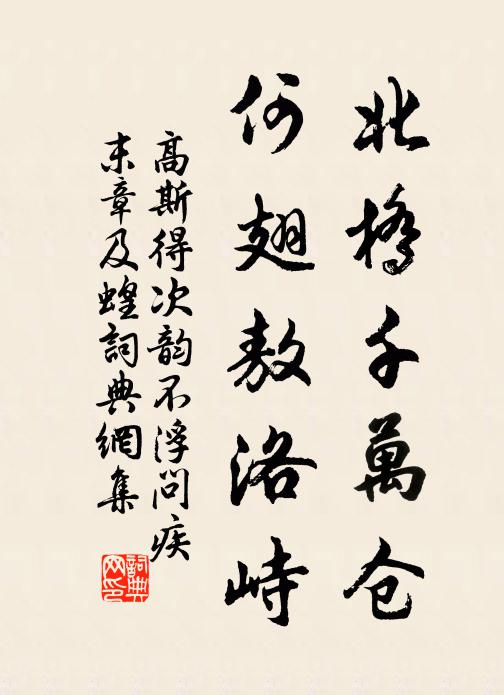 北橋千萬仓
何翅敖洛峙
高斯得次韵不浮問疾
末章及蝗詞典網集
詞典网印